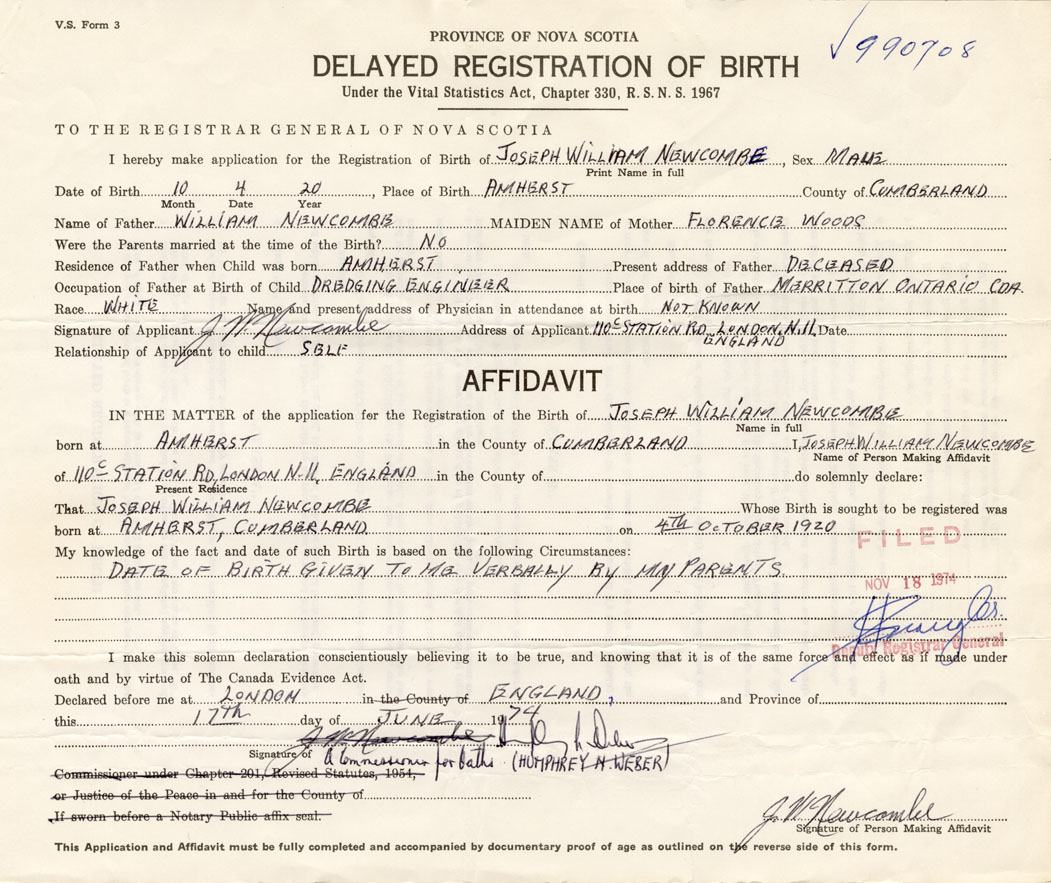 V.S. Form 3
PROVINCE OF NOVA SCOTIA
√990708
DELAYED REGISTRATION OF BIRTH
Under the Vital Statistics Act, Chapter 330, R.S.N.S. 1967
TO THE REGISTRAR GENERAL OF NOVA SCOTIA
I hereby make application for the Registration of Birth of JOSEPH WILLIAM NEWCOMBE, Sex MALE
Print Name in full
Date of Birth 10 4 20, Place of Birth AMHERST County of CUMBERLAND
Month Date Year
Name of Father WILLIAM NEWCOMBE MAIDEN NAME of Mother FLORENCE WOODS
Were the Parents married at the time of the Birth? NO
Residence of Father when Child was born AMHERST Present address of Father DECEASED
Occupation of Father at Birth of Child DREDGING ENGINEER Place of birth of Father MERRITTON ONTARIO CDA.
Race WHITE Name and present address of Physician in attendance at birth NOT KNOWN
Signature of Applicant J. W. Newcombe Address of Applicant 110C STATION RD, LONDON, N.11, Date
ENGLAND
Relationship of Applicant to child SELF
AFFIDAVIT
IN THE MATTER of the application for the Registration of the Birth of JOSEPH WILLIAM NEWCOMBE
Name in full
born at AMHERST in the County of CUMBERLAND I, JOSEPH WILLIAM NEWCOMBE
Name of Person Making Affidavit
of 110C STATION RD, LONDON N.11, ENGLAND in the County of do solemnly declare:
Present Residence
That JOSEPH WILLIAM NEWCOMBE Whose Birth is sought to be registered was
born at AMHERST, CUMBERLAND on 4TH OCTOBER 1920
FILED
My knowledge of the fact and date of such Birth is based on the following Circumstances:
DATE OF BIRTH GIVEN TO ME VERBALLY BY MY PARENTS
NOV 18 1974
Deputy Registrar General
I make this solemn declaration conscientiously believing it to be true, and knowing that it is of the same force and effect as if made under
oath and by virtue of The Canada Evidence Act.
Declared before me at LONDON in the County of ENGLAND, and Province of
this 17TH day of JUNE 1974
J. W. Newcombe
Signature of A Commissioner for Oaths (HUMPHREY H WEBER)
Commissioner under Chapter 201, Revised Statutes, 1954,
or Justice of the Peace in and for the County of
If sworn before a Notary Public affix seal.
J. W. Newcombe
Signature of Person Making Affidavit
This Application and Affidavit must be fully completed and accompanied by documentary proof of age as outlined on the reverse side of this form.